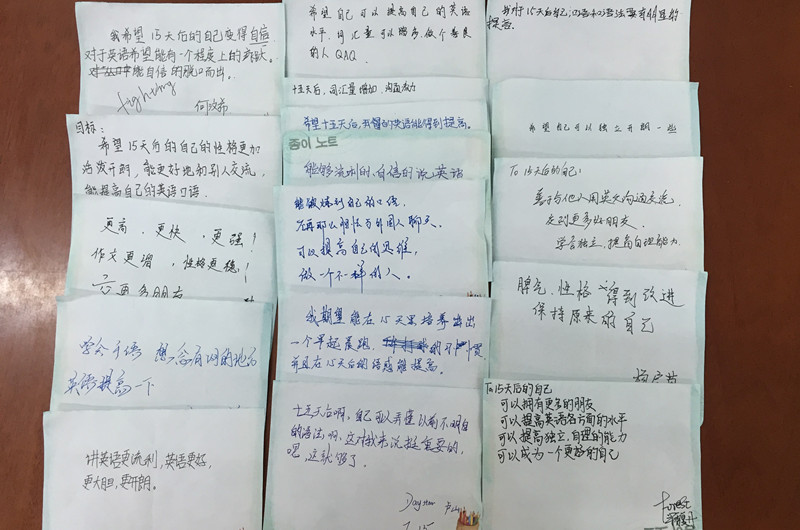 我希望15天后的自己变得自信
对于英语希望能有一个程度上的
能自信的脱口而出。
fighting
目标:
希望15天后的自己的性格更加
活泼开朗,能更好地和别人交流,
能提高自己的英语口语.
更高、更快、更强!
作文更溜,性格更稳!
更多朋友
学会
英语提高一下
讲英语更流利,英语更好,
更大胆,更开朗。
希望自己可以提高自己的英语
水平,词汇量可以增多,做个善良
的人QAQ
十五天后,词汇量增加,
希望十五天后,我的英语能得到提高。
종이 노트
能够流利的、自信的说英语
能够练到自己的口语,
可以提高自己的思维,
做一个不一样的人。
我期望能在15天里培养出
一个早起晨跑的习惯
并且在15天后的语感能提高。
十五天后啊,自己可以弄懂以前不明白
的语法啊,这对我来说挺重要的,
嗯,这就够了。
15天后自己
提高。
希望自己可以独立开朗一些
To 15天后的自己:
善于与他人用英文沟通交流
交到更多好朋友
学会独立,提高自理能力
脾气、性格得到改进
保持原来的自己
To 15天后的自己
可以拥有更多的朋友
可以提高英语各方面的水平
可以提高独立,自理的能力
可以成为一个更好的自己